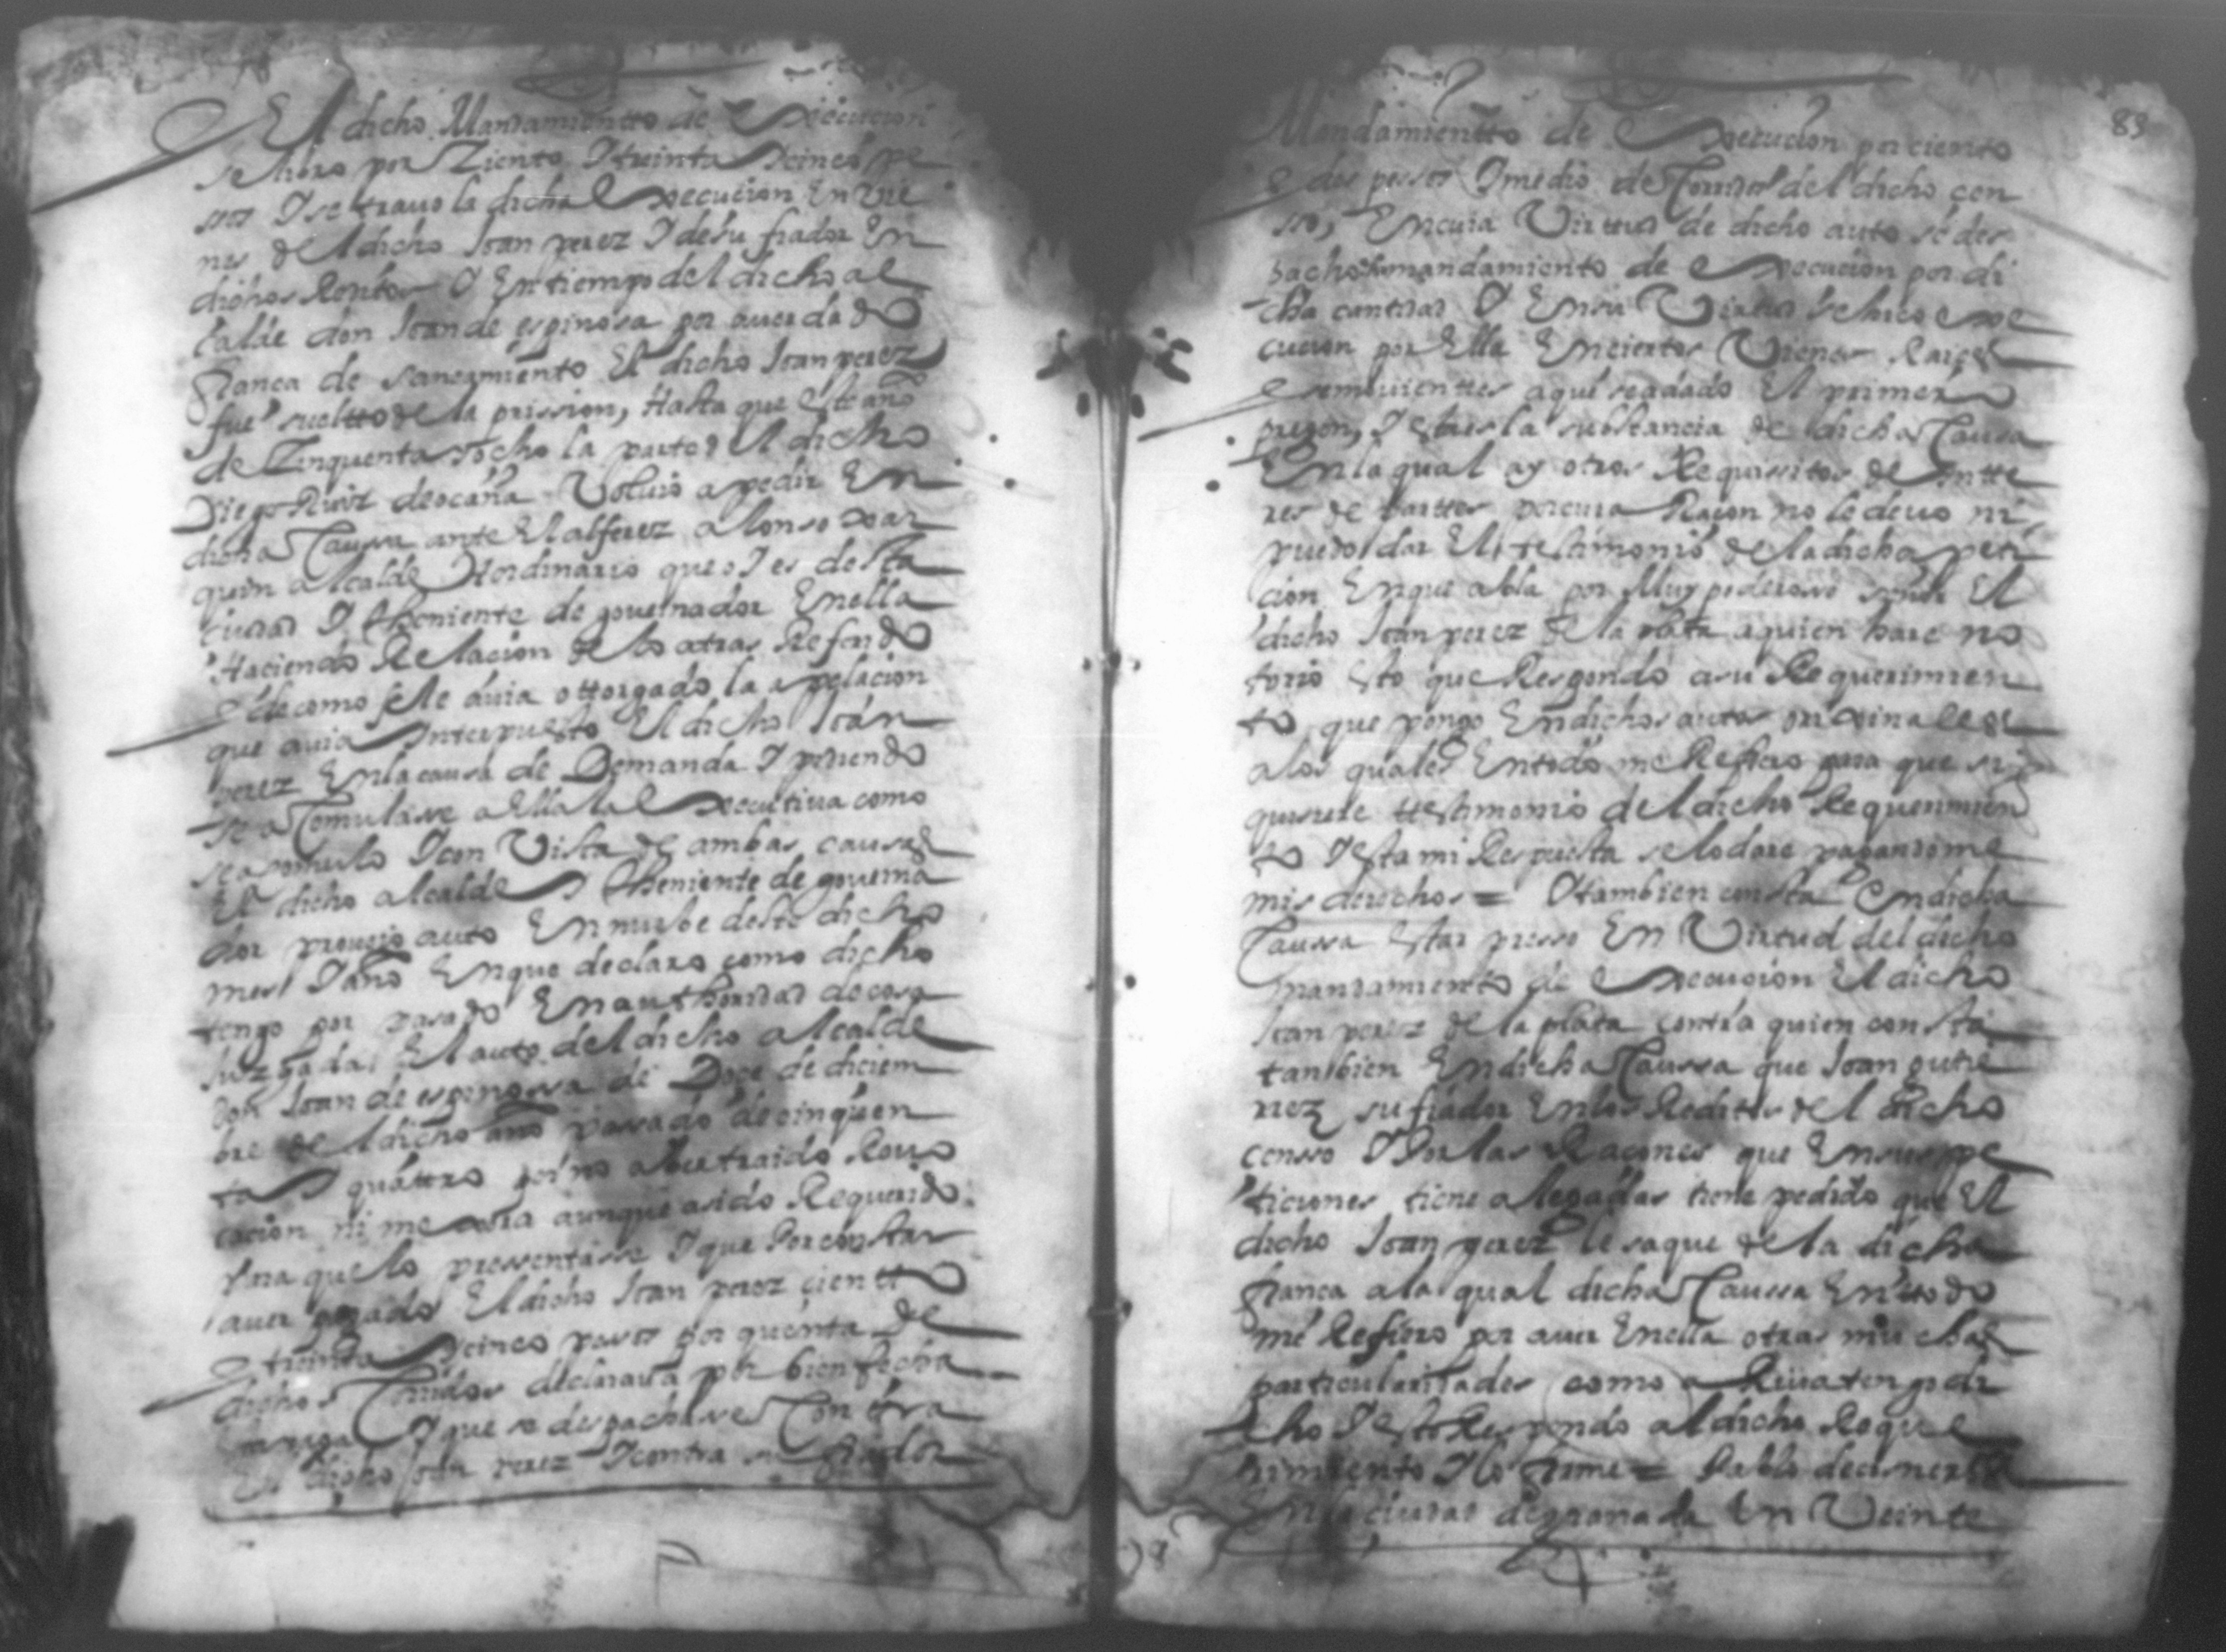 El dicho Mandamientto de Execucion
se hiço por Ziento Y treinta Y cinco pe
sos Y se trauo la dicha Execucion En vie
nes del dicho Joan perez Y de su fiador En
dichos Y En tiempo del dicho al
calde don Joan de espinosa por auer dado
fiança de saneamiento El dicho Joan perez
fue sueltto de la prission, Hasta que este año
de Zinquenta Y ocho la parte del dicho
Diego Ruiz de ocaña Voluio a pedir En
dicha Caussa ante El alferez alonso mar
quin alcalde Hordinario que oy es desta
ciudad Y theniente de gouernador Enella
Haciendo Relacion de lo atras Referido
E de como se le auia ottorgado la apelacion
que auia Interpuesto El dicho Joan
perez Enla causa de Demanda Y pidiendo
se acomulasse a Ella la Executiua como
se acomulo Y con Vista de ambas causas
El dicho alcalde Y theniente de gouerna
dor proueio auto En nueue deste dicho
mes Y año Enque declaro como dicho
tengo por pasado En authoridad de cosa
Juzgada El auto del dicho alcalde
don Joan de espinossa de Doçe de diciem
bre del dicho año passado de cinquen
ta Y quattro por no auer traido
cacion ni mejoria aunque a sido Requerido
para que lo pressentasse Y que Por constar
auer pagado El dicho Joan perez cientto
E treinta Y cinco pesos por quenta de
dichos Corridos declaraua por bien fecha
la paga Y que se despachasse Contra
El dicho Joan perez Y contra su fiador
83
Mandamientto de Execucion por ciento
E dos pessos Y medio de Corridos del dicho cen
sso, En cuia Virttud de dicho auto se des
pacho mandamiento de Execucion por di
cha cantidad Y En su Virtud se hiço exe
cucion por Ella En ciertos Vienes Raices
E semouienttes a que se a dado El primer
pregon, Y esta es la substancia de la dicha Caussa
En la qual ay otros Requissitos de Intte
res de parttes por cuia Raçon no le deuo ni
puedo dar El testimonio de la dicha peti
cion En que abla por Muy poderosso señor El
dicho Joan perez de la plata a quien hare no
torio esto que Respondo a su Requerimien
to que pongo En dichos autos originales
a los quales En todo me Refiero para que si
quisiere testimonio del dicho Requerimien
to Y esta mi Respuesta se lo dare pagandome
mis derechos = Y tambien consta En dicha
Caussa estar presso En Virtud del dicho
mandamiento de Execucion El dicho
Joan perez de la plata contra quien consta
tambien En dicha Caussa que Joan gutie
rrez su fiador En los Reditos del dicho
censso Y Por las Raçones que En sus pe
ticiones tiene alegadas tiene pedido que El
dicho Joan perez le saque de la dicha
fiança a la qual dicha Caussa En todo
me Refiero por auer Enella otras muchas
particularidades como arriua tengo di
cho Y esto Respondo al dicho Reque
rimiento Y lo firme = Pablo de cisneros
En la ciudad de granada En Veinte